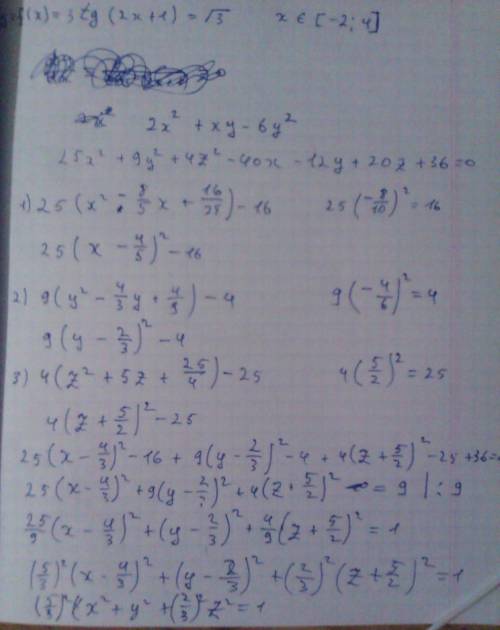 f(x) = 3tg(2x+1) = √3 x ∈ [-2; 4]
2x² + xy - 6y²
25x² + 9y² + 4z² - 40x - 12y + 20z + 36 = 0
1) 25(x² - 8/5 x + 16/25) - 16 25(-8/10)² = 16
25(x - 4/5)² - 16
2) 9(y² - 4/3 y + 4/9) - 4 9(-4/6)² = 4
9(y - 2/3)² - 4
3) 4(z² + 5z + 25/4) - 25 4(5/2)² = 25
4(z + 5/2)² - 25
25(x - 4/3)² - 16 + 9(y - 2/3)² - 4 + 4(z + 5/2)² - 25 + 36 =
25(x - 4/3)² + 9(y - 2/3)² + 4(z + 5/2)² = 9 | : 9
25/9 (x - 4/3)² + (y - 2/3)² + 4/9 (z + 5/2)² = 1
(5/3)² (x - 4/3)² + (y - 2/3)² + (2/3)² (z + 5/2)² = 1
(5/3)² x² + y² + (2/3)² z² = 1